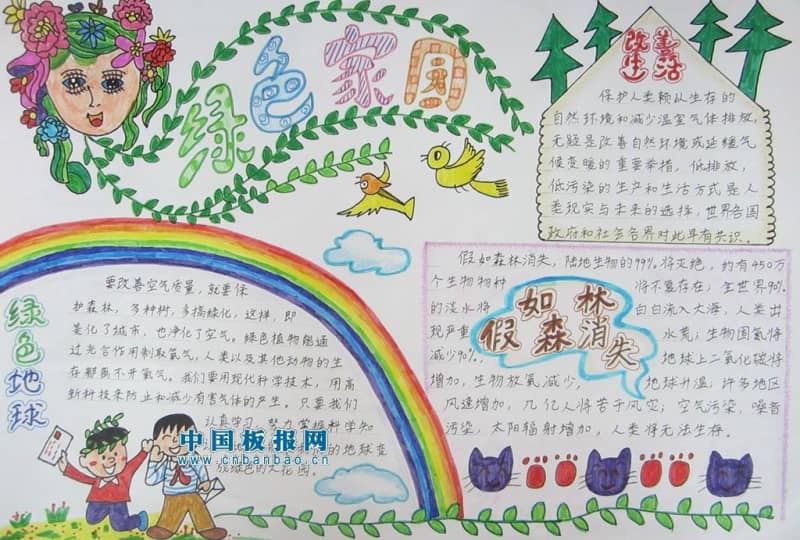 绿色家园
改善
生活
保护人类赖以生存的
自然环境和减少温室气体排放,
无疑是改善自然环境或延缓气
候变暖的重要举措。低排放,
低污染的生产和生活方式是人
类现实与未来的选择,世界各国
政府和社会各界对此早有共识。
绿色地球
要改善空气质量,就要保
护森林,多种树,多搞绿化,这样,即
美化了城市,也净化了空气。绿色植物能通
过光合作用制取氧气,人类以及其他动物的生
存都离不开氧气。我们要用现代科学技术,用高
新科技来防止和减少有害气体的产生。只要我们
认真学习,努力掌握科学知
的地球变
成绿色的大花园。
假如森林消失
假如森林消失,陆地生物的99%将灭绝,约有450万
个生物物种 将不复存在;全世界90%
的淡水将 白白流入大海,人类出
现严重 水荒;生物固氮将
减少90%. 地球上二氧化碳将
增加,生物放氧减少, 地球升温,许多地区
风速增加,几亿人将苦于风灾;空气污染,噪音
污染,太阳辐射增加,人类将无法生存。
中国板报网
www.cnbanbao.cn